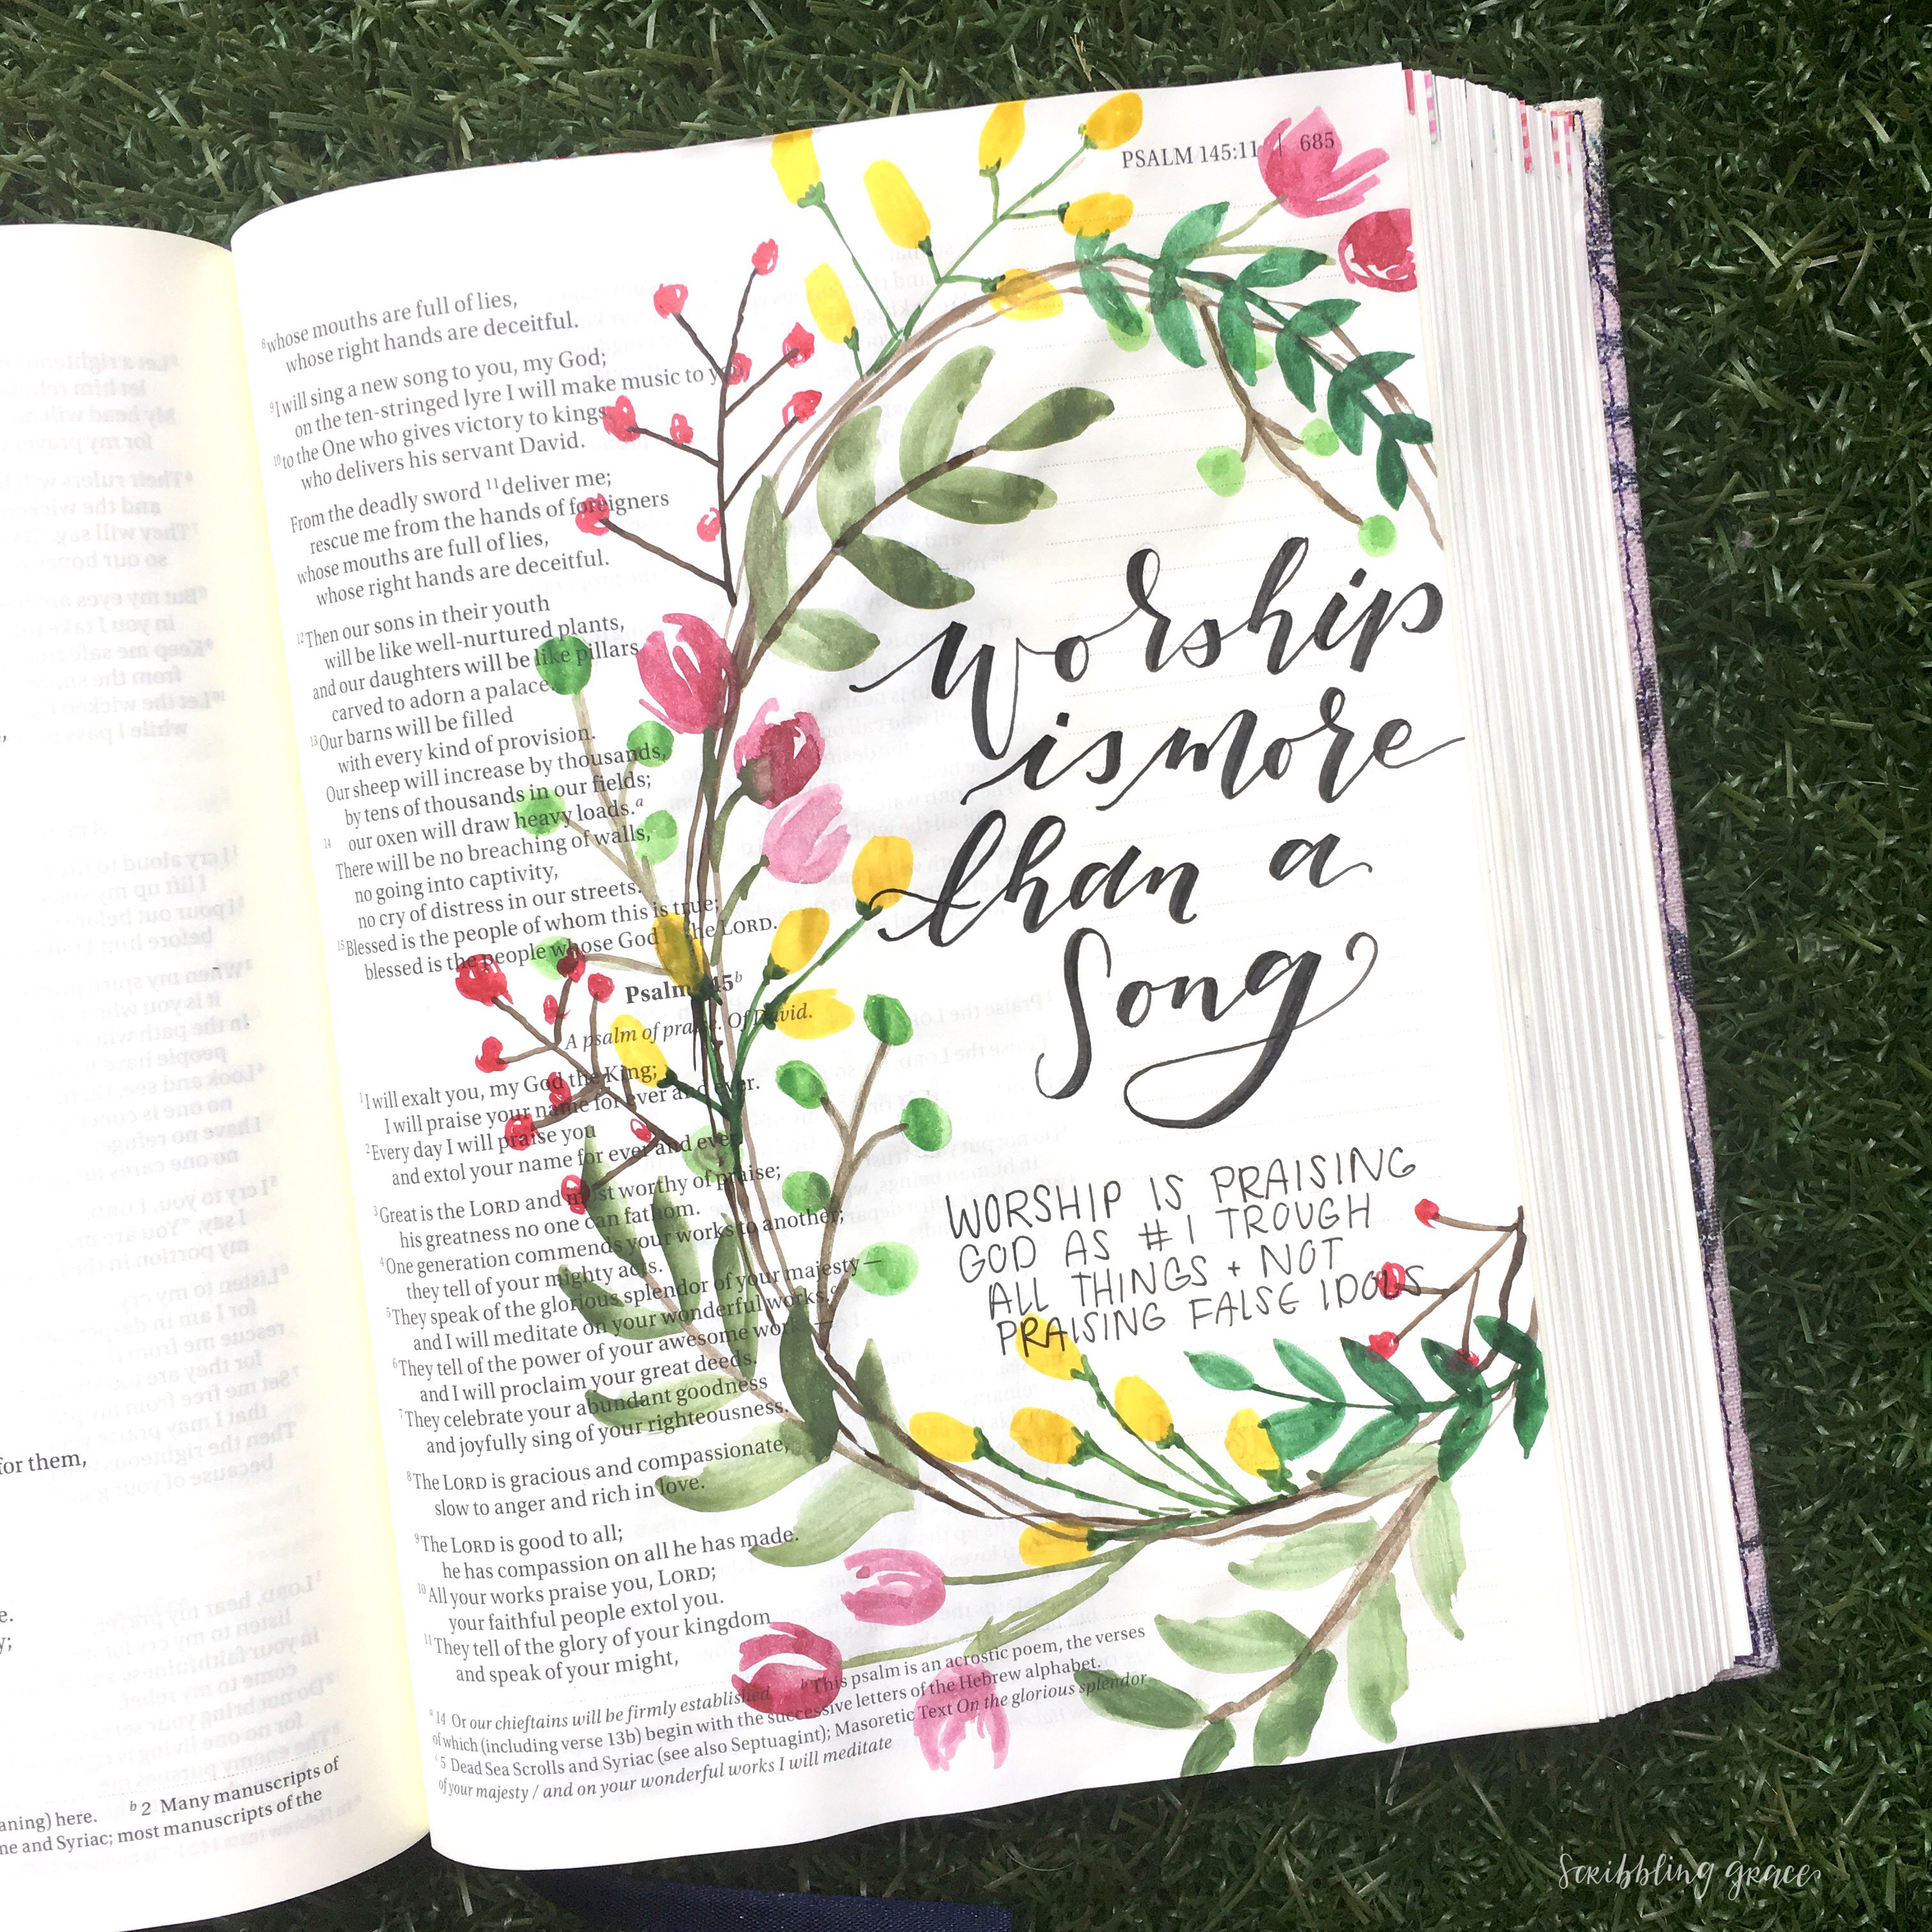 PSALM 145:11 | 685
8 whose mouths are full of lies,
whose right hands are deceitful.
9 I will sing a new song to you, my God;
on the ten-stringed lyre I will make music to you,
10 to the One who gives victory to kings,
who delivers his servant David.
From the deadly sword 11 deliver me;
rescue me from the hands of foreigners
whose mouths are full of lies,
whose right hands are deceitful.
12 Then our sons in their youth
will be like well-nurtured plants,
and our daughters will be like pillars
carved to adorn a palace.
13 Our barns will be filled
with every kind of provision.
Our sheep will increase by thousands,
by tens of thousands in our fields;
14 our oxen will draw heavy loads.a
There will be no breaching of walls,
no going into captivity,
no cry of distress in our streets.
15 Blessed is the people of whom this is true;
blessed is the people whose God is the LORD.
Psalm 145b
A psalm of praise. Of David.
1 I will exalt you, my God the King;
I will praise your name for ever and ever.
2 Every day I will praise you
and extol your name for ever and ever.
3 Great is the LORD and most worthy of praise;
his greatness no one can fathom.
4 One generation commends your works to another;
they tell of your mighty acts.
5 They speak of the glorious splendor of your majesty —
and I will meditate on your wonderful works.c
6 They tell of the power of your awesome works —
and I will proclaim your great deeds.
7 They celebrate your abundant goodness
and joyfully sing of your righteousness.
8 The LORD is gracious and compassionate,
slow to anger and rich in love.
9 The LORD is good to all;
he has compassion on all he has made.
10 All your works praise you, LORD;
your faithful people extol you.
11 They tell of the glory of your kingdom
and speak of your might,
a 14 Or our chieftains will be firmly established b This psalm is an acrostic poem, the verses
of which (including verse 13b) begin with the successive letters of the Hebrew alphabet.
c 5 Dead Sea Scrolls and Syriac (see also Septuagint); Masoretic Text On the glorious splendor
of your majesty / and on your wonderful works I will meditate
worship
is more
than a
Song
WORSHIP IS PRAISING
GOD AS #1 TROUGH
ALL THINGS + NOT
PRAISING FALSE IDOLS
for them,
aning) here. b 2 Many manuscripts of
ne and Syriac; most manuscripts of the
scribbling grace